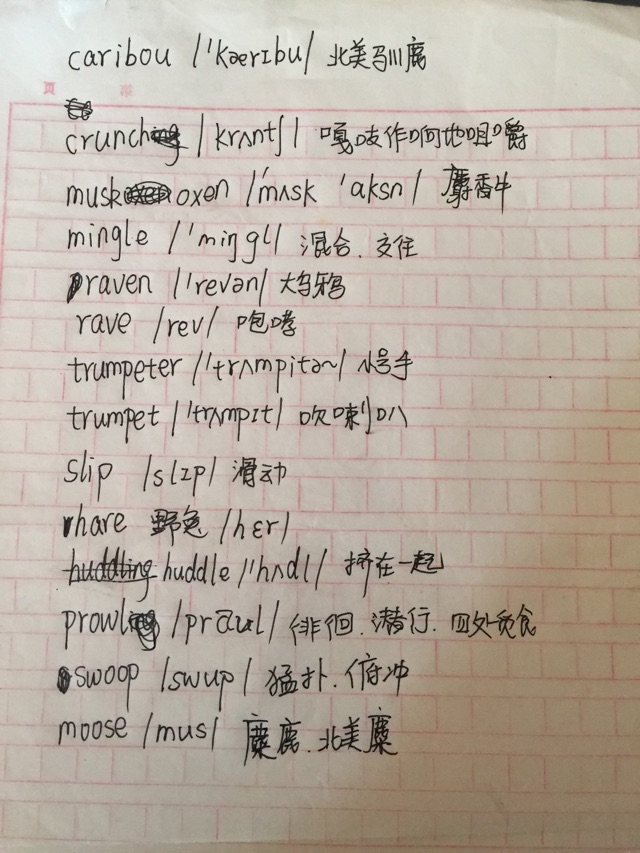 caribou /ˈkærɪbu/ 北美驯鹿
页 第
crunch /krʌntʃ/ 嘎吱作响地咀嚼
musk oxen /ˈmʌsk ˈaksn/ 麝香牛
mingle /ˈmiŋgl/ 混合、交往
raven /ˈrevən/ 大乌鸦
rave /rev/ 咆哮
trumpeter /ˈtrʌmpitə~/ 小号手
trumpet /ˈtrʌmpɪt/ 吹喇叭
slip /slɪp/ 滑动
hare 野兔 /hɛr/
huddling huddle /ˈhʌdl/ 挤在一起
prowl /praʊl/ 徘徊、潜行、四处觅食
swoop /swup/ 猛扑、俯冲
moose /mus/ 麋鹿、北美麋